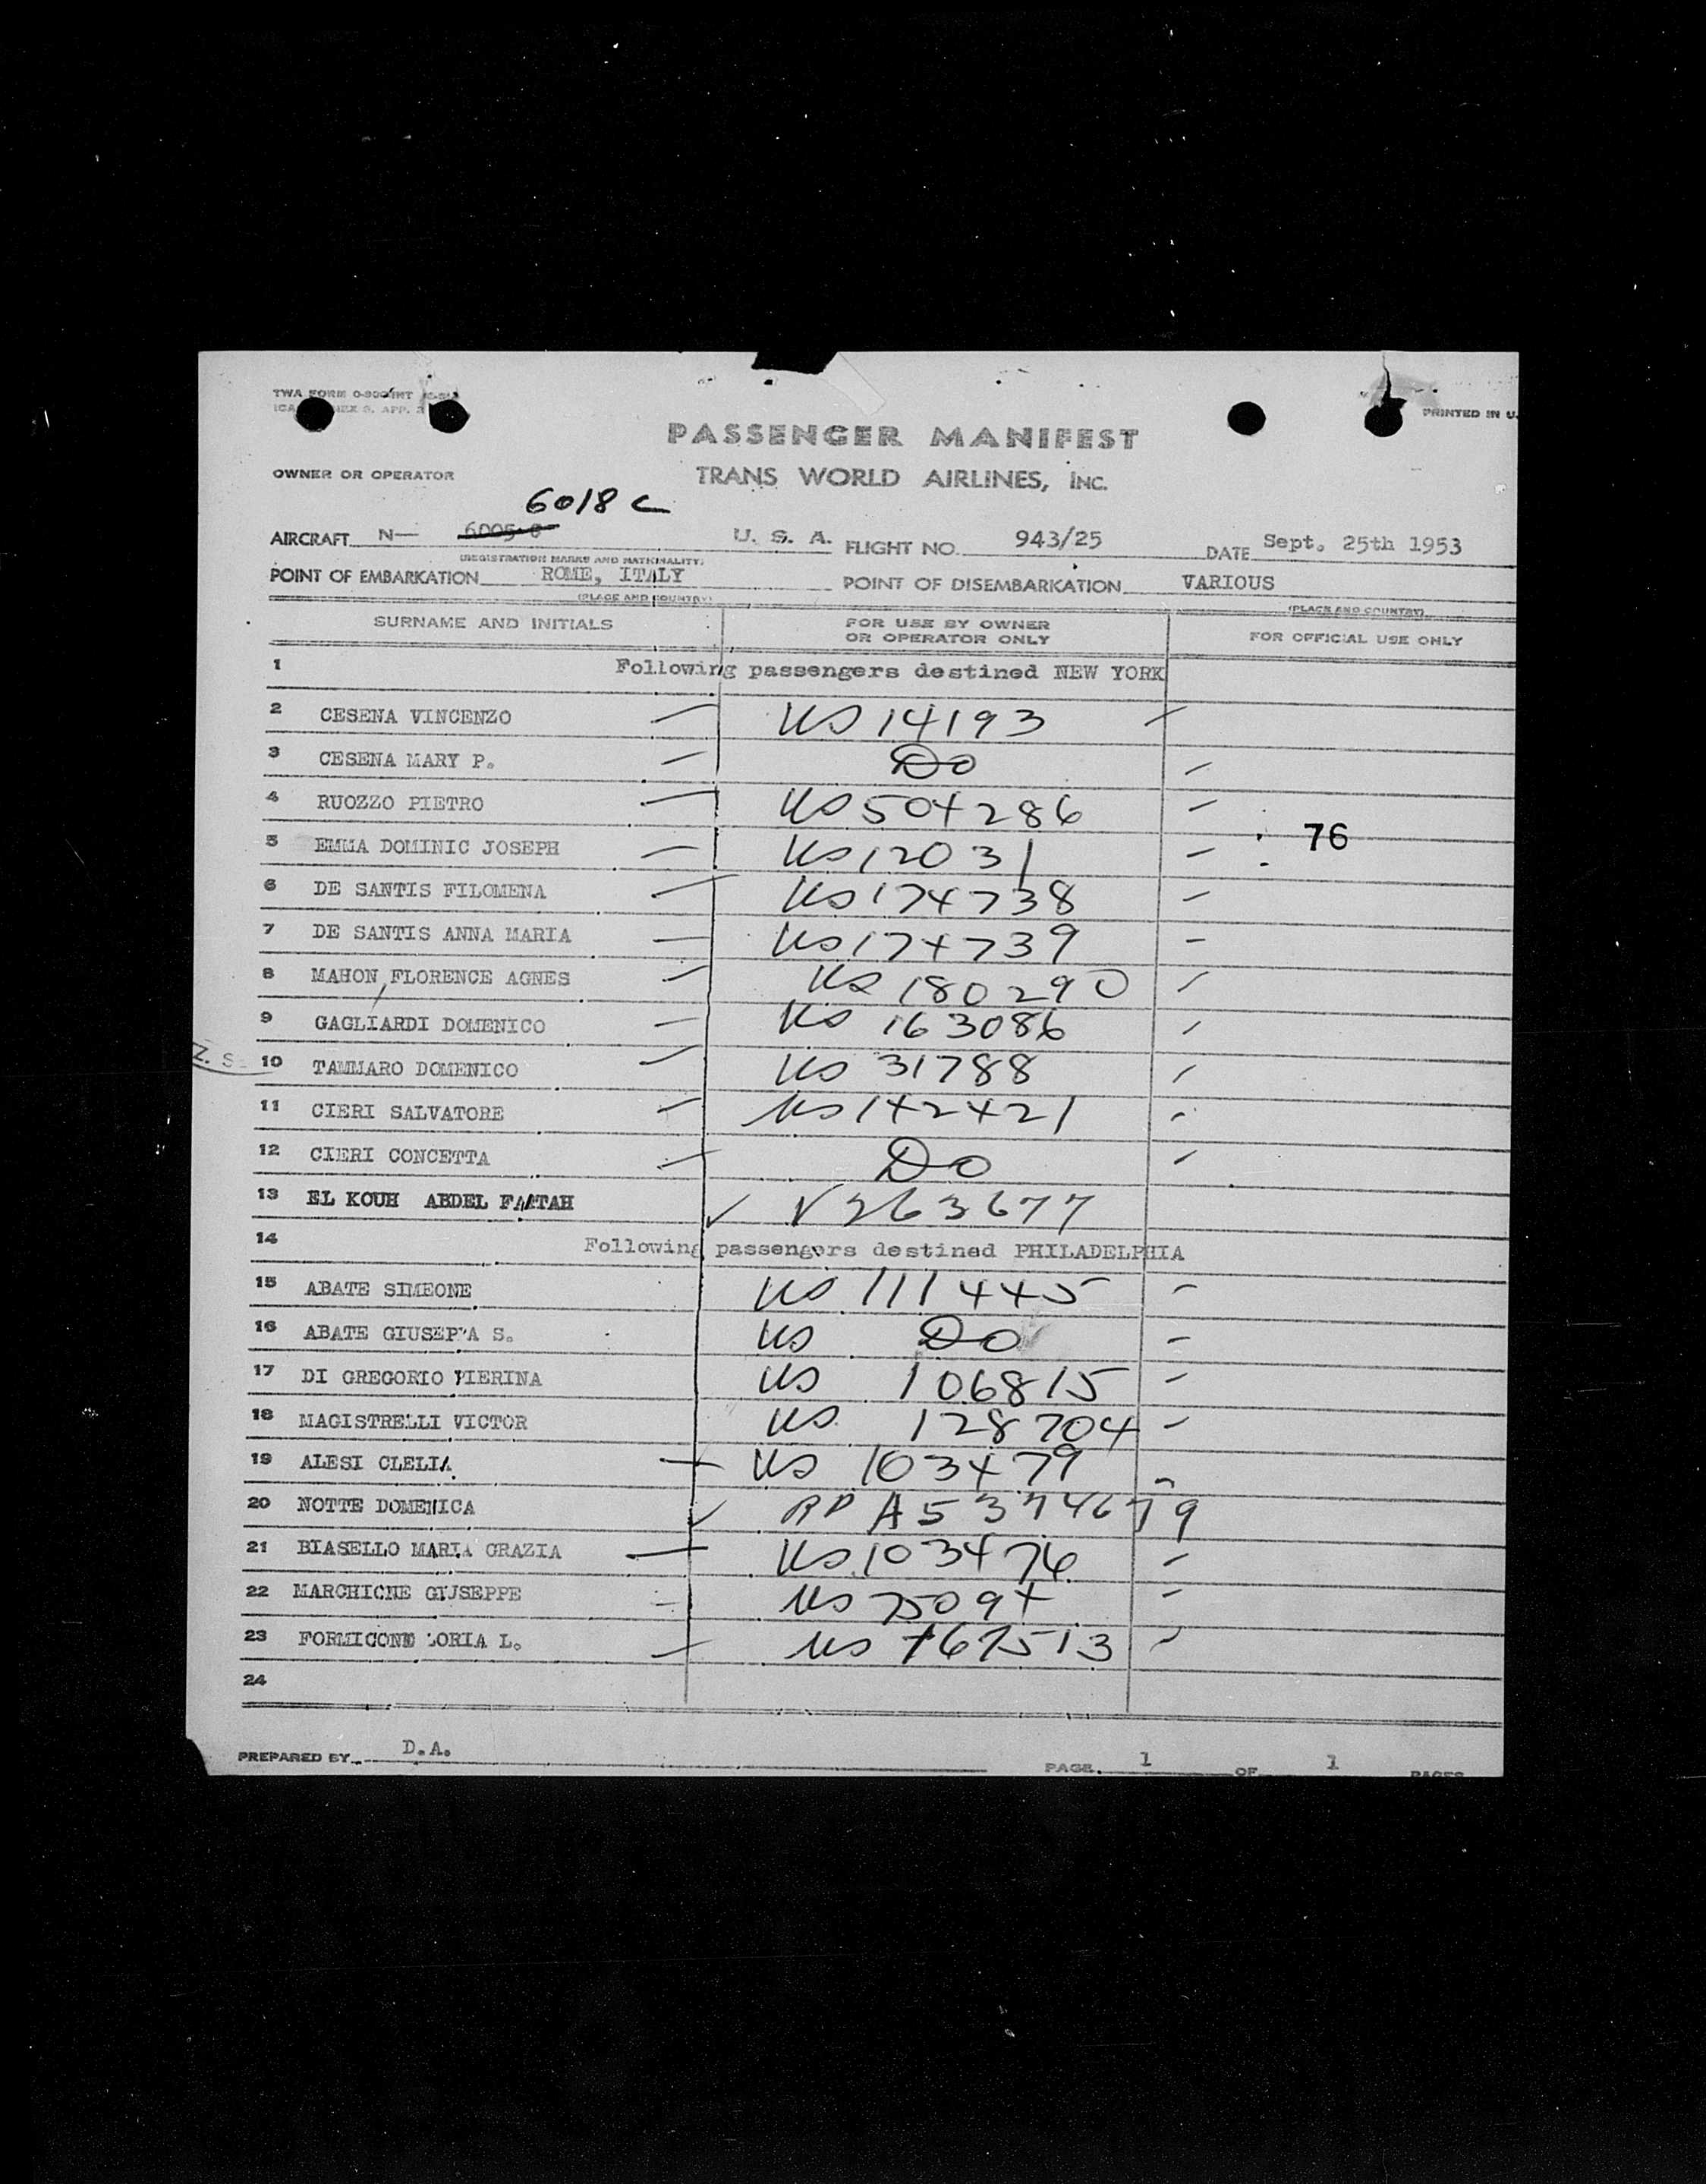 TWA FORM
PRINTED IN U.
PASSENGER MANIFEST
OWNER OR OPERATOR TRANS WORLD AIRLINES, INC.
6018 C
AIRCRAFT N— 6005-C U. S. A. FLIGHT NO. 943/25 DATE Sept. 25th 1953
(REGISTRATION MARKS AND NATIONALITY)
POINT OF EMBARKATION ROME, ITALY POINT OF DISEMBARKATION VARIOUS
(PLACE AND COUNTRY) (PLACE AND COUNTRY)
SURNAME AND INITIALS FOR USE BY OWNER OR OPERATOR ONLY FOR OFFICIAL USE ONLY
1 Following passengers destined NEW YORK
2 CESENA VINCENZO — US 14193
3 CESENA MARY P. — Do
4 RUOZZO PIETRO — US 504286
76
5 EMMA DOMINIC JOSEPH — US 12031
6 DE SANTIS FILOMENA — US 174738
7 DE SANTIS ANNA MARIA — US 174739
8 MAHON, FLORENCE AGNES — US 180290
9 GAGLIARDI DOMENICO — US 163086
Z. S
10 TAMMARO DOMENICO — US 31788
11 CIERI SALVATORE — US 142421
12 CIERI CONCETTA — Do
13 EL KOUH ABDEL FATTAH ✓ V263677
14 Following passengers destined PHILADELPHIA
15 ABATE SIMEONE US 111445
16 ABATE GIUSEPPA S. US Do
17 DI GREGORIO PIERINA US 106815
18 MAGISTRELLI VICTOR US 128704
19 ALESI CLELIA — US 103479
20 NOTTE DOMENICA ✓ RP A5374679
21 BIASELLO MARIA GRAZIA — US 103476
22 MARCHIONE GIUSEPPE — US 75094
23 FORMICONE LORIA L. — US
24
PREPARED BY D.A. PAGE 1 OF 1 PAGES